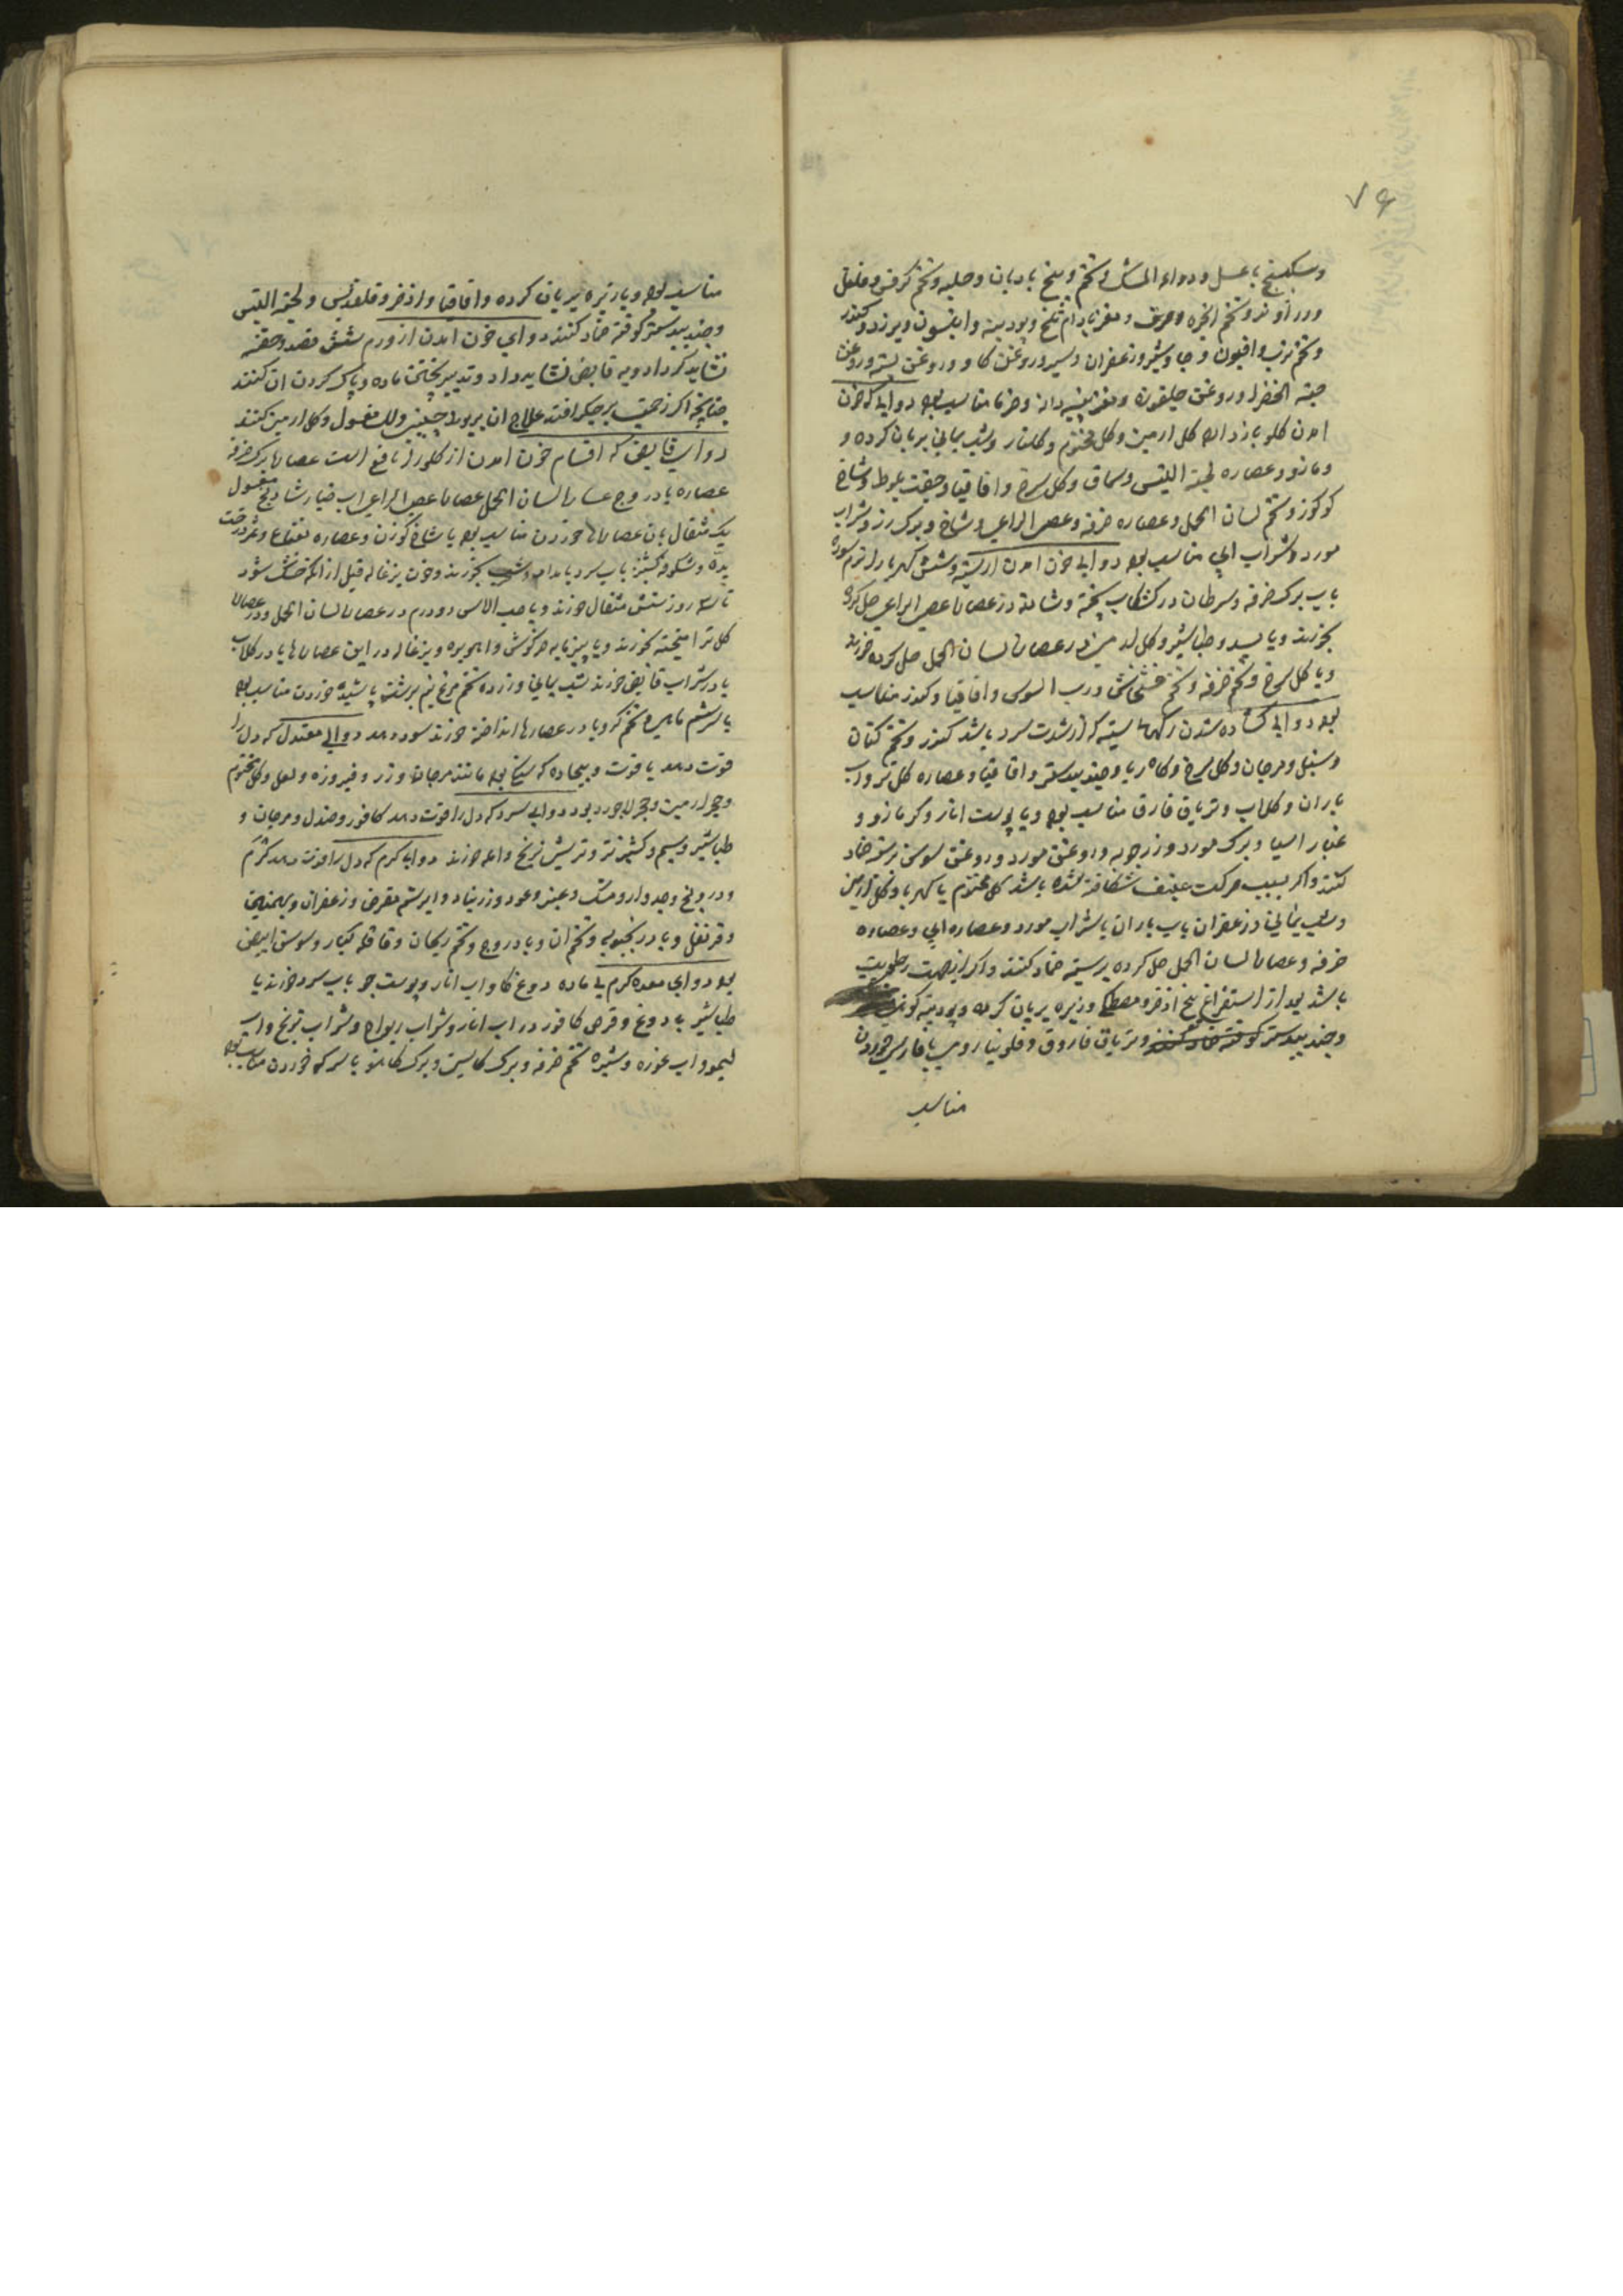 ۷۹
وسکبینج با عسل و دواء المشک و تخم و بیخ بادیان و حلبه و تخم کرفس و فلفل
و تخم انجره و مغز بادام تلخ و پودینه و انیسون و بیرزد و کندر
و تخم ترب و افیون و جاوشیر و زعفران و سیر و روغن کاو و روغن پسته و روغن
حبة الخضرا و روغن چلقوزه و مغز پنبه دانه و خرما مناسب بود دوایی که خون
امدن کلو بازدارد کل ارمنی و کل مختوم و کلنار و شب یمانی بریان کرده و
و مازو و عصاره لحیة التیس و سماق و کل سرخ و اقاقیا و جفت بلوط و شاخ
کوزن و تخم لسان الحمل و عصاره خرفه و عصی الراعی و شاخ و برک رز و شراب
مورد و شراب ابی مناسب بود دوایی خون امدن از سینه و شش کهربا
باب برک خرفه و سرطان در کشکاب پخته و شادنه در عصاره عصی الراعی حل کرده
بخورند و یا بسد و طباشیر و کل ارمنی در عصاره لسان الحمل حل کرده خورند
و یا کل سرخ و تخم خرفه و تخم خشخاش و رب السوس و اقاقیا و کندر مناسب
بود دوایی کشاده شدن رکهای سینه که از شدت سرد باشد کندر و تخم کتان
و سنبل و مرجان و کل سرخ و کاه ربا و جند بیدستر و اقاقیا و عصاره کل تر و اب
باران و کلاب و تریاق فارق مناسب بود و یا پوست انار و کزمازو و
غبار اسیا و برک مورد و زرجوبه و روغن مورد و روغن سوسن سرشته ضماد
کنند و اکر بسبب حرکت عنیف شکافته شده باشد کل مختوم یا کهربا و کل ارمنی
و شب یمانی و زعفران باب باران یا شراب مورد و عصاره ابی و عصاره
خرفه و عصاره لسان الحمل حل کرده بر سینه ضماد کنند و اکر از جهت رطوبت
باشد بعد از استفراغ بیخ اذخر و مصطکی و زیره بریان کرده و پودینه کوهی
و جند بیدستر کوفته ضماد کنند و تریاق فاروق و فلونیا رومی یا فارسی خوردن
مناسب
مناسب بود و یا زیره بریان کرده و اقاقیا و اذخر و قلقدیس و لحیة التیس
و جند بیدستر کوفته ضماد کنند دوای خون امدن از ورم شش فصد و حقنه
نشاید کرد ادویه قابض نشاید داد و تدبیر پختن ماده و پاک کردن ان کنند
چنانچه اکر زحمت بر جکر افتد علاج ان بریوند چینی و لک مغسول و کل ارمنی کنند
دوای قابض که اقسام خون امدن از کلو را نافع است عصاره برک خرفه
عصاره بادروج عصاره لسان الحمل عصاره عصی الراعی اب خیار شادنج مغسول
یک مثقال بان عصارها خوردن مناسب بود یا شاخ کوزن و عصاره نعناع و ثمر درخت
بده و شکوفه کشنیز باب سرد بامداد و شب بخورند و خون بزغاله قبل از انکه خشک شود
تا سه روز شش مثقال خورند و یا حب الاس دو درم در عصاره لسان الحمل و در عصاره
کل تر امیخته بخورند و یا پنیر مایه خرکوش و اهو بره و بزغاله در این عصارها یا در کلاب
یا در شراب قابض خورند شب یمانی و زرده تخم مرغ نیم برشته پاشیده خوردن مناسب بود
یا سریشم ماهی و تخم کرویا در عصارها انداخته خورند سود دهد دوایی معتدل که دل را
قوت دهد یاقوت و بیجاده که سرخ بود مانند مرجان و زر و فیروزه و لعل و کل مختوم
و حجر ارمنی و حجر لاجورد بود دوایی سرد که دل را قوت دهد کافور و صندل و مرجان و
طباشیر و سیم و کشنیز تر و ترشی ترنج و امله خورند دوایی کرم که دل را قوت دهد
و درونج و جدوار و مشک و عنبر و عود و زرنباد و ابریشم مقرض و زعفران و بهمنین
و قرنفل و بادرنجبویه و تخم ان و بادروج و تخم ریحان و قاقله کبار و سوسن ابیض
بود دوای معده کرم بی ماده دوغ کاو و اب انار و پوست جو باب سرد خورند یا
طباشیر با دوغ و قرص کافور در اب انار و شراب ریواج و شراب ترنج و اب
لیمو و اب غوره و شیره تخم خرفه و برک کاسنی و برک کاهو با سرکه خوردن مناسب بود